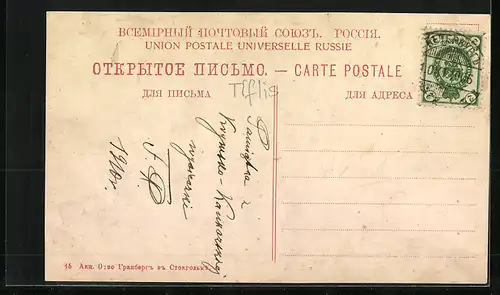 ВСЕМІРНЫЙ ПОЧТОВЫЙ СОЮЗЪ. РОССІЯ.
UNION POSTALE UNIVERSELLE RUSSIE
ОТКРЫТОЕ ПИСЬМО. — CARTE POSTALE
ДЛЯ ПИСЬМА
ДЛЯ АДРЕСА
Tiflis
Pamiątka z
Krymsko-Kaukazkiej
wycieczki
1910 r.
Акц. О-во Гранбергъ въ Стокгольмѣ